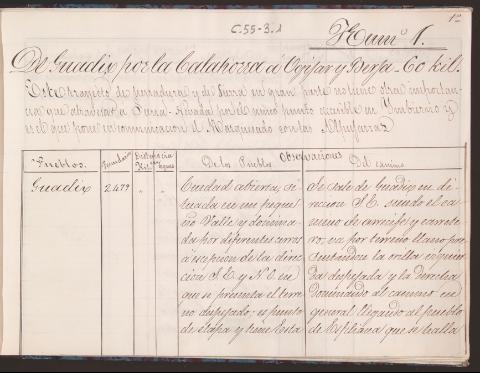 C.55-3.1
1º
Num.º 1.
De Guadix por la Calahorra á Ugijar y Berja - 60 kil.
Este trayecto de herradura y de Sierra en gran parte no tiene otra importan-
cia que atravesar á Sierra-Nevada por el único punto accesible en Ymbierno y
es el que pone en comunicacion el Marquesado con las Alpujarras
Pueblos.
Distancia
Kil.
Observaciones
De los Pueblos
Del camino
Guadix
2479
" "
Ciudad abierta, si-
tuada en un peque-
ño Valle y domina-
da por diferentes cerros
á escepcion de la direc-
cion S.E. y N.E. en
que se presenta el terre-
no despejado; es punto
de etapa y tiene Esta
Se sale de Guadix en di-
reccion S.E. siendo el ca-
mino de arrecife y carrete-
ro; va por terreno llano pre-
sentandose la orilla izquier-
da despejada y la derecha
dominando al camino en
general llegando al pueblo
de Esfiliana que se halla